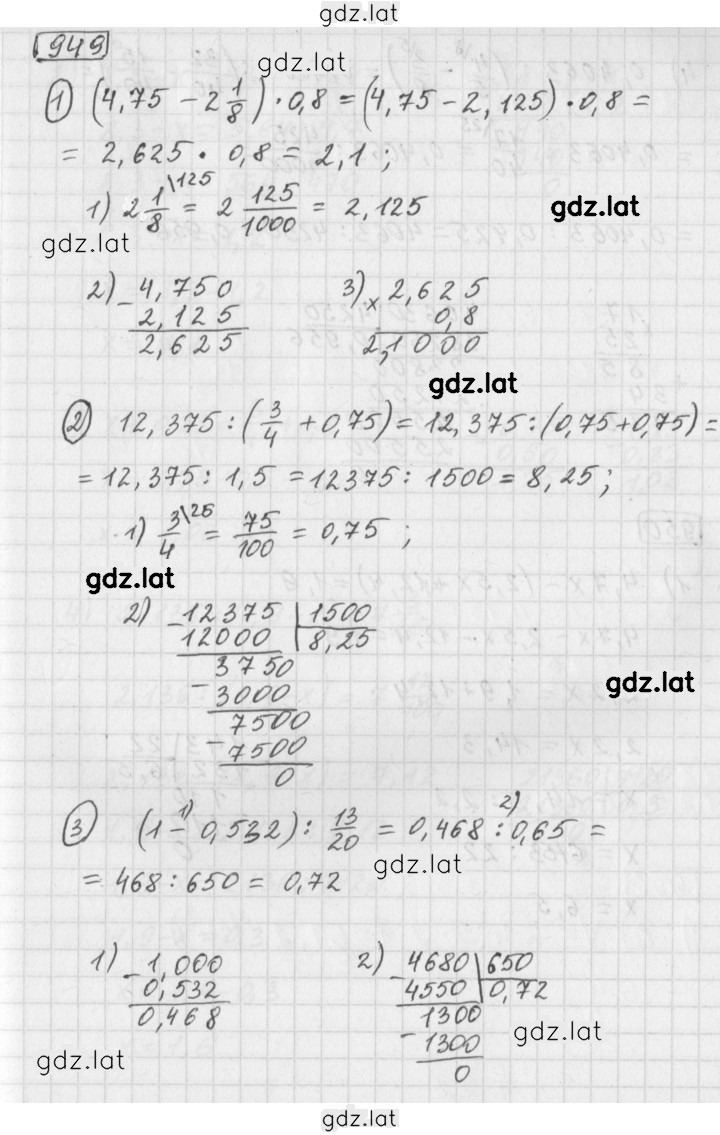 gdz.lat
949
gdz.lat
1) (4,75 - 2 1/8) · 0,8 = (4,75 - 2,125) · 0,8 =
= 2,625 · 0,8 = 2,1 ;
1) 2 1/8 \125 = 2 125/1000 = 2,125
gdz.lat
gdz.lat
2) - 4,750
2,125
2,625
3) × 2,625
0,8
2,1000
gdz.lat
2) 12,375 : (3/4 + 0,75) = 12,375 : (0,75 + 0,75) =
= 12,375 : 1,5 = 12375 : 1500 = 8,25 ;
1) 3/4 \25 = 75/100 = 0,75 ;
gdz.lat
2) - 12375 | 1500
12000 | 8,25
3750
- 3000
7500
7500
0
gdz.lat
3) (1 -1) 0,532) : 13/20 = 0,468 :2) 0,65 =
gdz.lat
= 468 : 650 = 0,72
1) - 1,000
0,532
0,468
2) - 4680 | 650
4550 | 0,72
1300
- 1300
0
gdz.lat
gdz.lat
gdz.lat